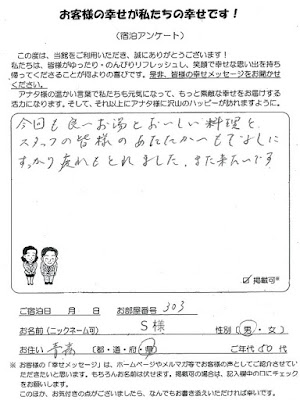 お客様の幸せが私たちの幸せです！
（宿泊アンケート）
この度は、当館をご利用いただき、誠にありがとうございます！
私たちは、皆様がゆったり・のんびりリフレッシュし、笑顔で幸せな思い出を持ち
帰ってくださることが何よりの喜びです。是非、皆様の幸せメッセージをお聞かせ
ください。
アナタ様の温かい言葉で私たちも元気になって、もっと素敵な幸せをお届けする
活力になります。そして、それ以上にアナタ様に沢山のハッピーが訪れますように。
今回も良いお湯とおいしい料理と、
スタッフの皆様のあたたかいもてなしに
すっかり疲れもとれました。また来たいです
☑ 掲載可※
ご宿泊日　月　日　お部屋番号　303
お名前（ニックネーム可）　S様　性別（男・女）
お住い　青森（都・道・府・県）　ご年代 50 代
※ お客様の「幸せメッセージ」は、ホームページやメルマガ等でお客様の声としてご紹介させてい
ただきたいと思います。もちろんお名前は伏せます。掲載可の場合は、記入欄中の□にチェック
をお願いします。
このほか、お気付きの点がございましたら、なんでもお書き添えいただければ幸いです。